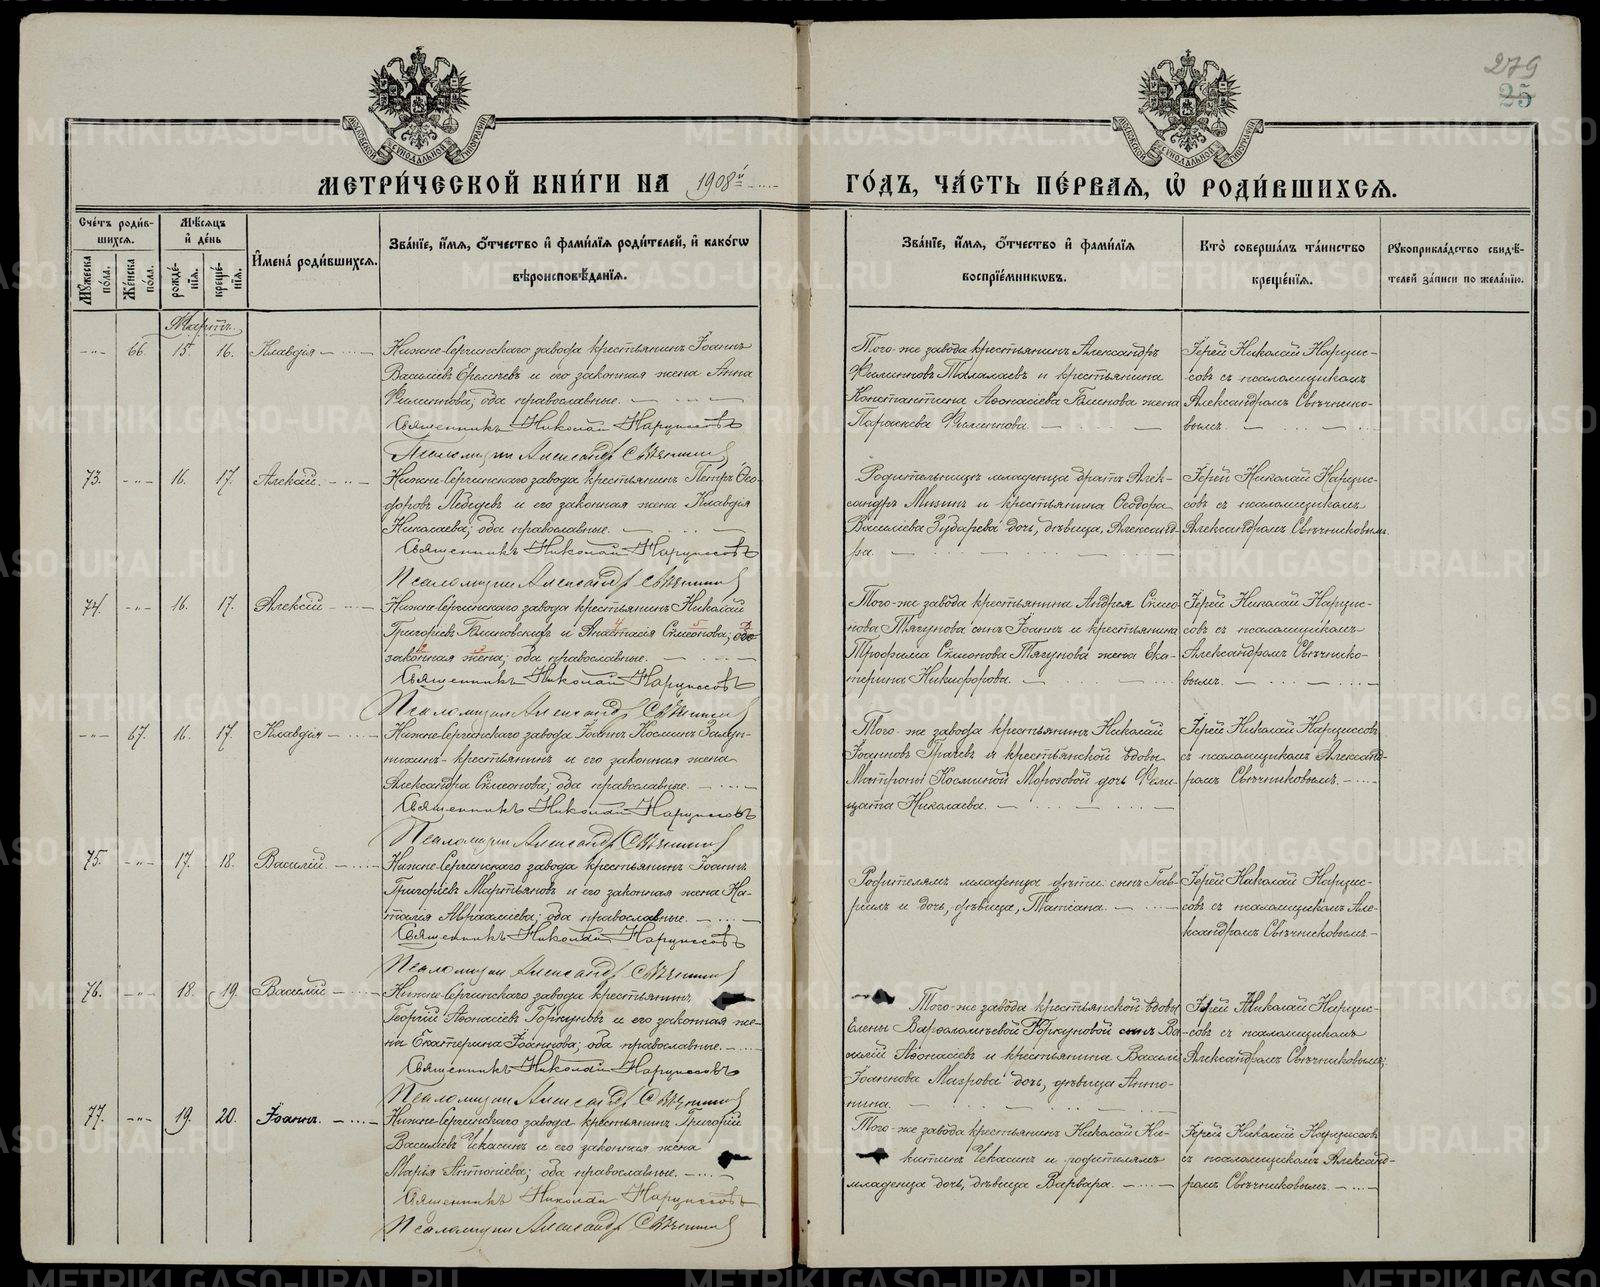 279
25
МОСКОВСКОЙ СѴНОДАЛЬНОЙ ТИПОГРАФІИ
МОСКОВСКОЙ СѴНОДАЛЬНОЙ ТИПОГРАФІИ
МЕТРИ́ЧЕСКОЙ КНИ́ГИ НА 1908й
ГО́ДЪ, ЧА́СТЬ ПЕ́РВАѦ, Ѡ҆ РОДИ́ВШИХСѦ.
Сче́тъ роди́в-
шихсѧ.
Мꙋ́жеска по́ла.
Же́нска по́ла.
Мѣ́сѧцъ
и҆ де́нь
рожде́-нїѧ.
креще́-нїѧ.
И҆мена̀ роди́вшихсѧ.
Зва́нїе, и҆́мѧ, ѻ҆́тчество и҆ фами́лїѧ роди́телей, и҆ како́гѡ
вѣроисповѣ́данїѧ.
Зва́нїе, и҆́мѧ, ѻ҆́тчество и҆ фами́лїѧ
воспрїе́мникѡвъ.
Кто̀ соверша́лъ та́инство
креще́нїѧ.
Рꙋкоприкла́дство свидѣ́-
телей за́писи по жела́нїю.
Мартъ.
66 15. 16. Клавдія
Нижне-Сергинскаго завода крестьянинъ Іоаннъ
Васильевъ Еремѣевъ и его законная жена Анна
Филиппова; оба православные.
Священникъ Николай Нарциссовъ
Псаломщик Александр Свѣчник
Того-же завода крестьянинъ Александръ
Филипповъ Талалаевъ и крестьянина
Константина Аѳонасіева Блинова жена
Параскева Филиппова.
Іерей Николай Нарцис-
совъ съ псаломщикомъ
Александромъ Свѣчнико-
вымъ
73. 16. 17. Алексій.
Нижне-Сергинскаго завода крестьянинъ Петръ Ѳео-
доровъ Лебедевъ и его законная жена Клавдія
Николаева; оба православные.
Священникъ Николай Нарциссовъ
Псаломщик Александр Свѣчник
Родительницы младенца братъ Алек-
сандръ Мизинъ и крестьянина Ѳеодора
Василіева Зубарева дочь, дѣвица, Александ-
ра.
Іерей Николай Нарцис-
совъ съ псаломщикомъ
Александромъ Свѣчниковымъ.
74. 16. 17. Алексій
Нижне-Сергинскаго завода крестьянинъ Николай
Григоріевъ Блиновскихъ и Анастасія Симеонова; его
законная жена; оба православные.
Священникъ Николай Нарциссовъ
Псаломщик Александр Свѣчник
Того-же завода крестьянина Андрея Симео-
нова Тягунова сынъ Іоаннъ и крестьянина
Трофима Симеонова Тягунова жена Ека-
терина Никифорова.
Іерей Николай Нарцис-
совъ съ псаломщикомъ
Александромъ Свѣчнико-
вымъ.
67. 16. 17. Клавдія
Нижне-Сергинскаго завода Іоаннъ Космин
крестьянинъ и его законная жена
Александра Симеонова; оба православные.
Священникъ Николай Нарциссовъ
Псаломщик Александр Свѣчник
Того-же завода крестьянинъ Николай
Іоанновъ Грачевъ и крестьянской вдовы
Матроны Косминой Морозовой дочь Фели-
цата Николаева.
Іерей Николай Нарциссовъ
съ псаломщикомъ Александ-
ромъ Свѣчниковымъ.
75. 17. 18. Василій.
Нижне-Сергинскаго завода крестьянинъ Іоаннъ
Григоріевъ Мартьяновъ и его законная жена На-
талія Авраамиева; оба православные.
Священникъ Николай Нарциссовъ
Псаломщик Александр Свѣчник
Родителямъ младенца дѣти: сынъ Гав-
ріилъ и дочь, дѣвица, Татіана.
Іерей Николай Нарцис-
совъ съ псаломщикомъ Але-
ксандромъ Свѣчниковымъ.
76. 18. 19. Василій
Нижне-Сергинскаго завода крестьянинъ
Георгій Аѳонасіевъ Горкуновъ и его законная же-
на Екатерина Іоаннова; оба православные.
Священникъ Николай Нарциссовъ
Псаломщик Александр Свѣчник
Того-же завода крестьянской вдовы
Елены Варѳоломѣевой Горкуновой сынъ Ва-
силій Аѳонасіевъ и крестьянина Васили
Іоаннова Мазрова дочь, дѣвица Анто-
нина.
Іерей Николай Нарцис-
совъ съ псаломщикомъ
Александромъ Свѣчниковымъ;
77. 19. 20. Іоаннъ.
Нижне-Сергинскаго завода крестьянинъ Григорій
Василіевъ Чекасинъ и его законная жена
Марія Антоніева; оба православные.
Священникъ Николай Нарциссовъ
Псаломщик Александр Свѣчник
Того-же завода крестьянинъ Николай Ни-
китинъ Чекасинъ и родителямъ
младенца дочь, дѣвица Варвара.
Іерей Николай Нарциссовъ
съ псаломщикомъ Александ-
ромъ Свѣчниковымъ.
METRIKI.GASO-URAL.RU